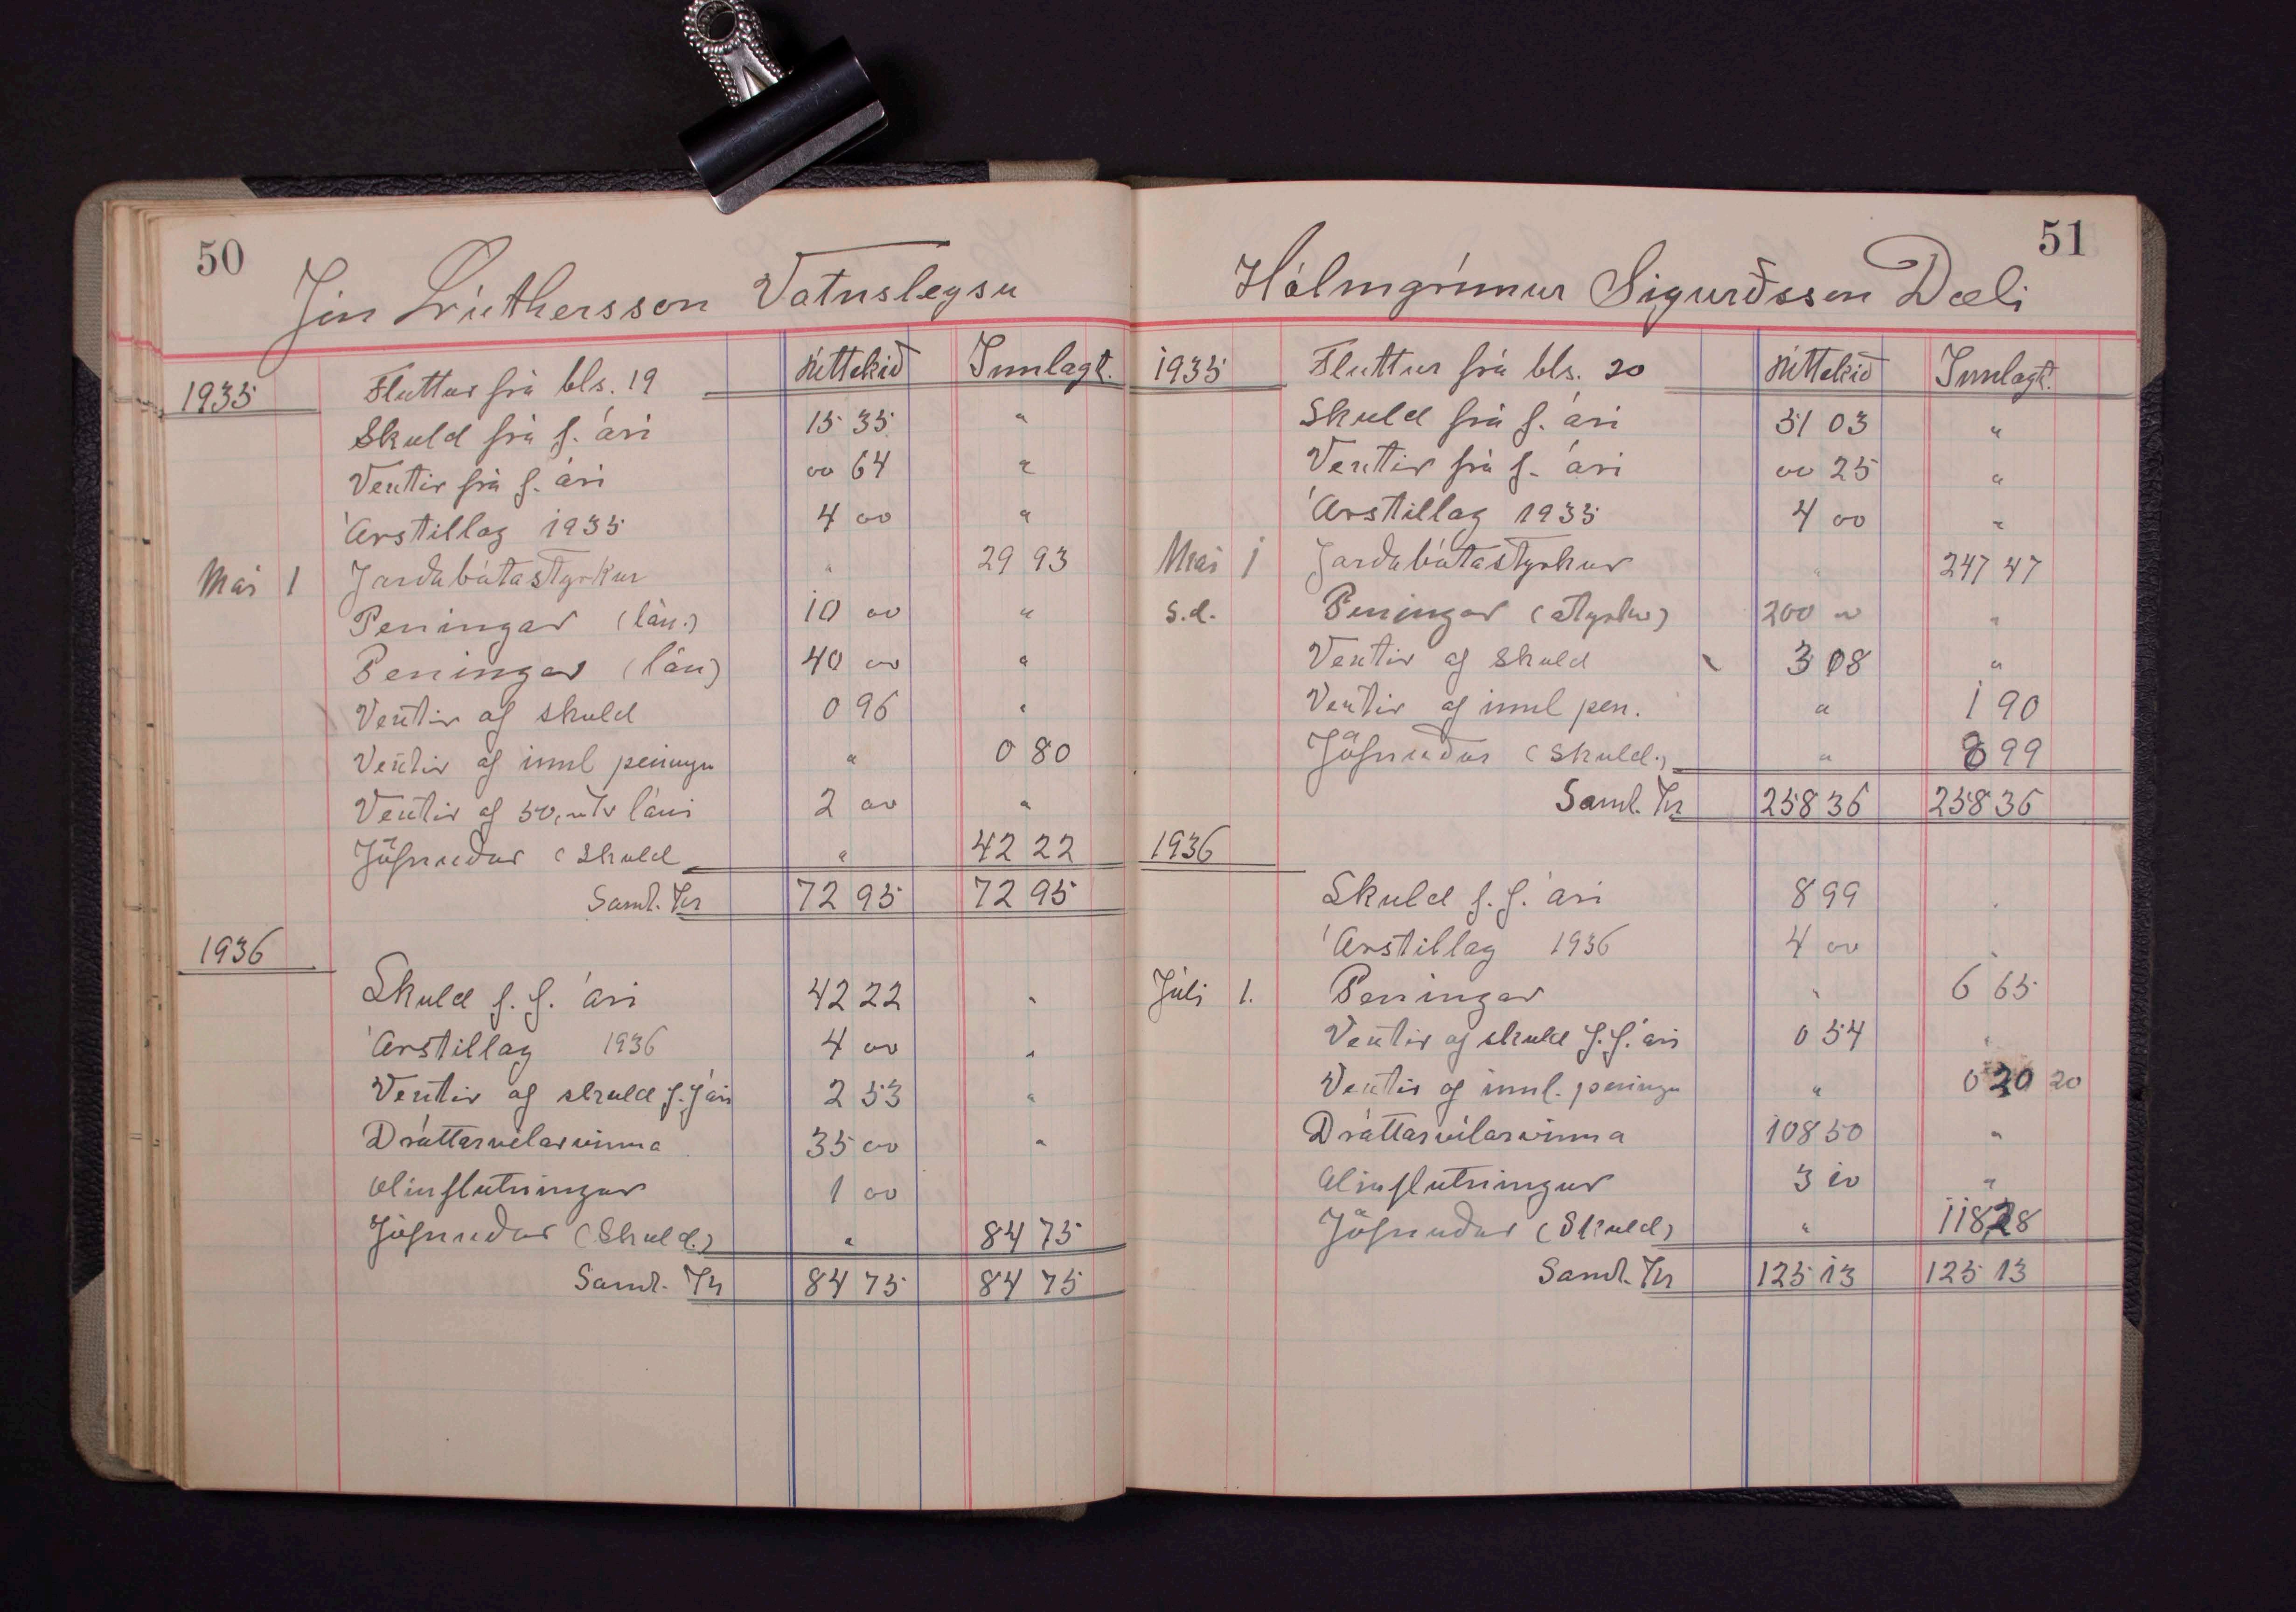 50
Jón Lúthersson Vatnsleysu
1935 Fluttur frá bls. 19 Úttekið Innlagt.
Skuld frá f. ári 15 35 "
Vextir frá f. ári 00 64 "
Árstillag 1935 4 00 "
Mai 1 Jarðabótastyrkur " 29 93
Peningar (lán.) 10 00 "
Peningar (lán) 40 00 "
Vextir af skuld 0 96 "
Vextir af innl peningu " 0 80
Vextir af 50,00 kr láni 2 00 "
Jöfnuður (Skuld " 42 22
Saml. Kr 72 95 72 95
1936
Skuld f. f. ári 42 22 "
Árstillag 1936 4 00 "
Vextir af skuld f. f ári 2 53 "
Dráttarvélarvinna 35 00 "
Olíuflutningur 1 00
Jöfnuður (Skuld.) " 84 75
Saml. Kr 84 75 84 75
51
Hólmgrímur Sigurðsson Dæli
1935 Fluttur frá bls. 20 Úttekið Innlagt.
Skuld frá f. ári 51 03 "
Vextir frá f. ári 00 25 "
Árstillag 1935 4 00 "
Mai 1 Jarðabótastyrkur " 247 47
s.d. Peningar (styrkur) 200 00 "
Vextir af skuld 3 08 "
Vextir af innl pen. " 1 90
Jöfnuður (skuld.) " 8 99
Saml. Kr 258 36 258 36
1936
Skuld f. f. ári 8 99 "
Árstillag 1936 4 00 "
Júli 1. Peningar " 6 65
Vextir af skuld f. f. ári 0 54 "
Vextir af innl. peningu " 0 20 20
Dráttarvélarvinna 108 50 "
Olíuflutningur 3 10 "
Jöfnuður (Skuld) " 118 28
Saml. Kr 125 13 125 13